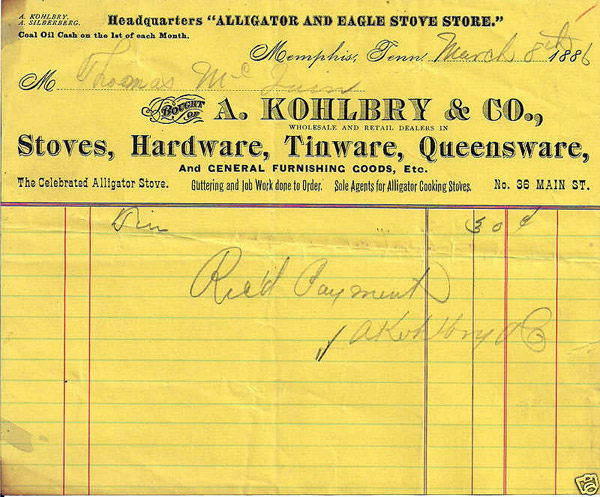 A. KOHLBRY.
A. SILBERBERG.
Headquarters "ALLIGATOR AND EAGLE STOVE STORE."
Coal Oil Cash on the 1st of each Month.
Memphis, Tenn. March 8th 1886
M Thomas Mc
BOUGHT OF A. KOHLBRY & CO.,
WHOLESALE AND RETAIL DEALERS IN
Stoves, Hardware, Tinware, Queensware,
And GENERAL FURNISHING GOODS, Etc.
The Celebrated Alligator Stove. Guttering and Job Work done to Order. Sole Agents for Alligator Cooking Stoves. No. 36 MAIN ST.
30 ¢
Rec'd Payment
A Kohlbry & Co